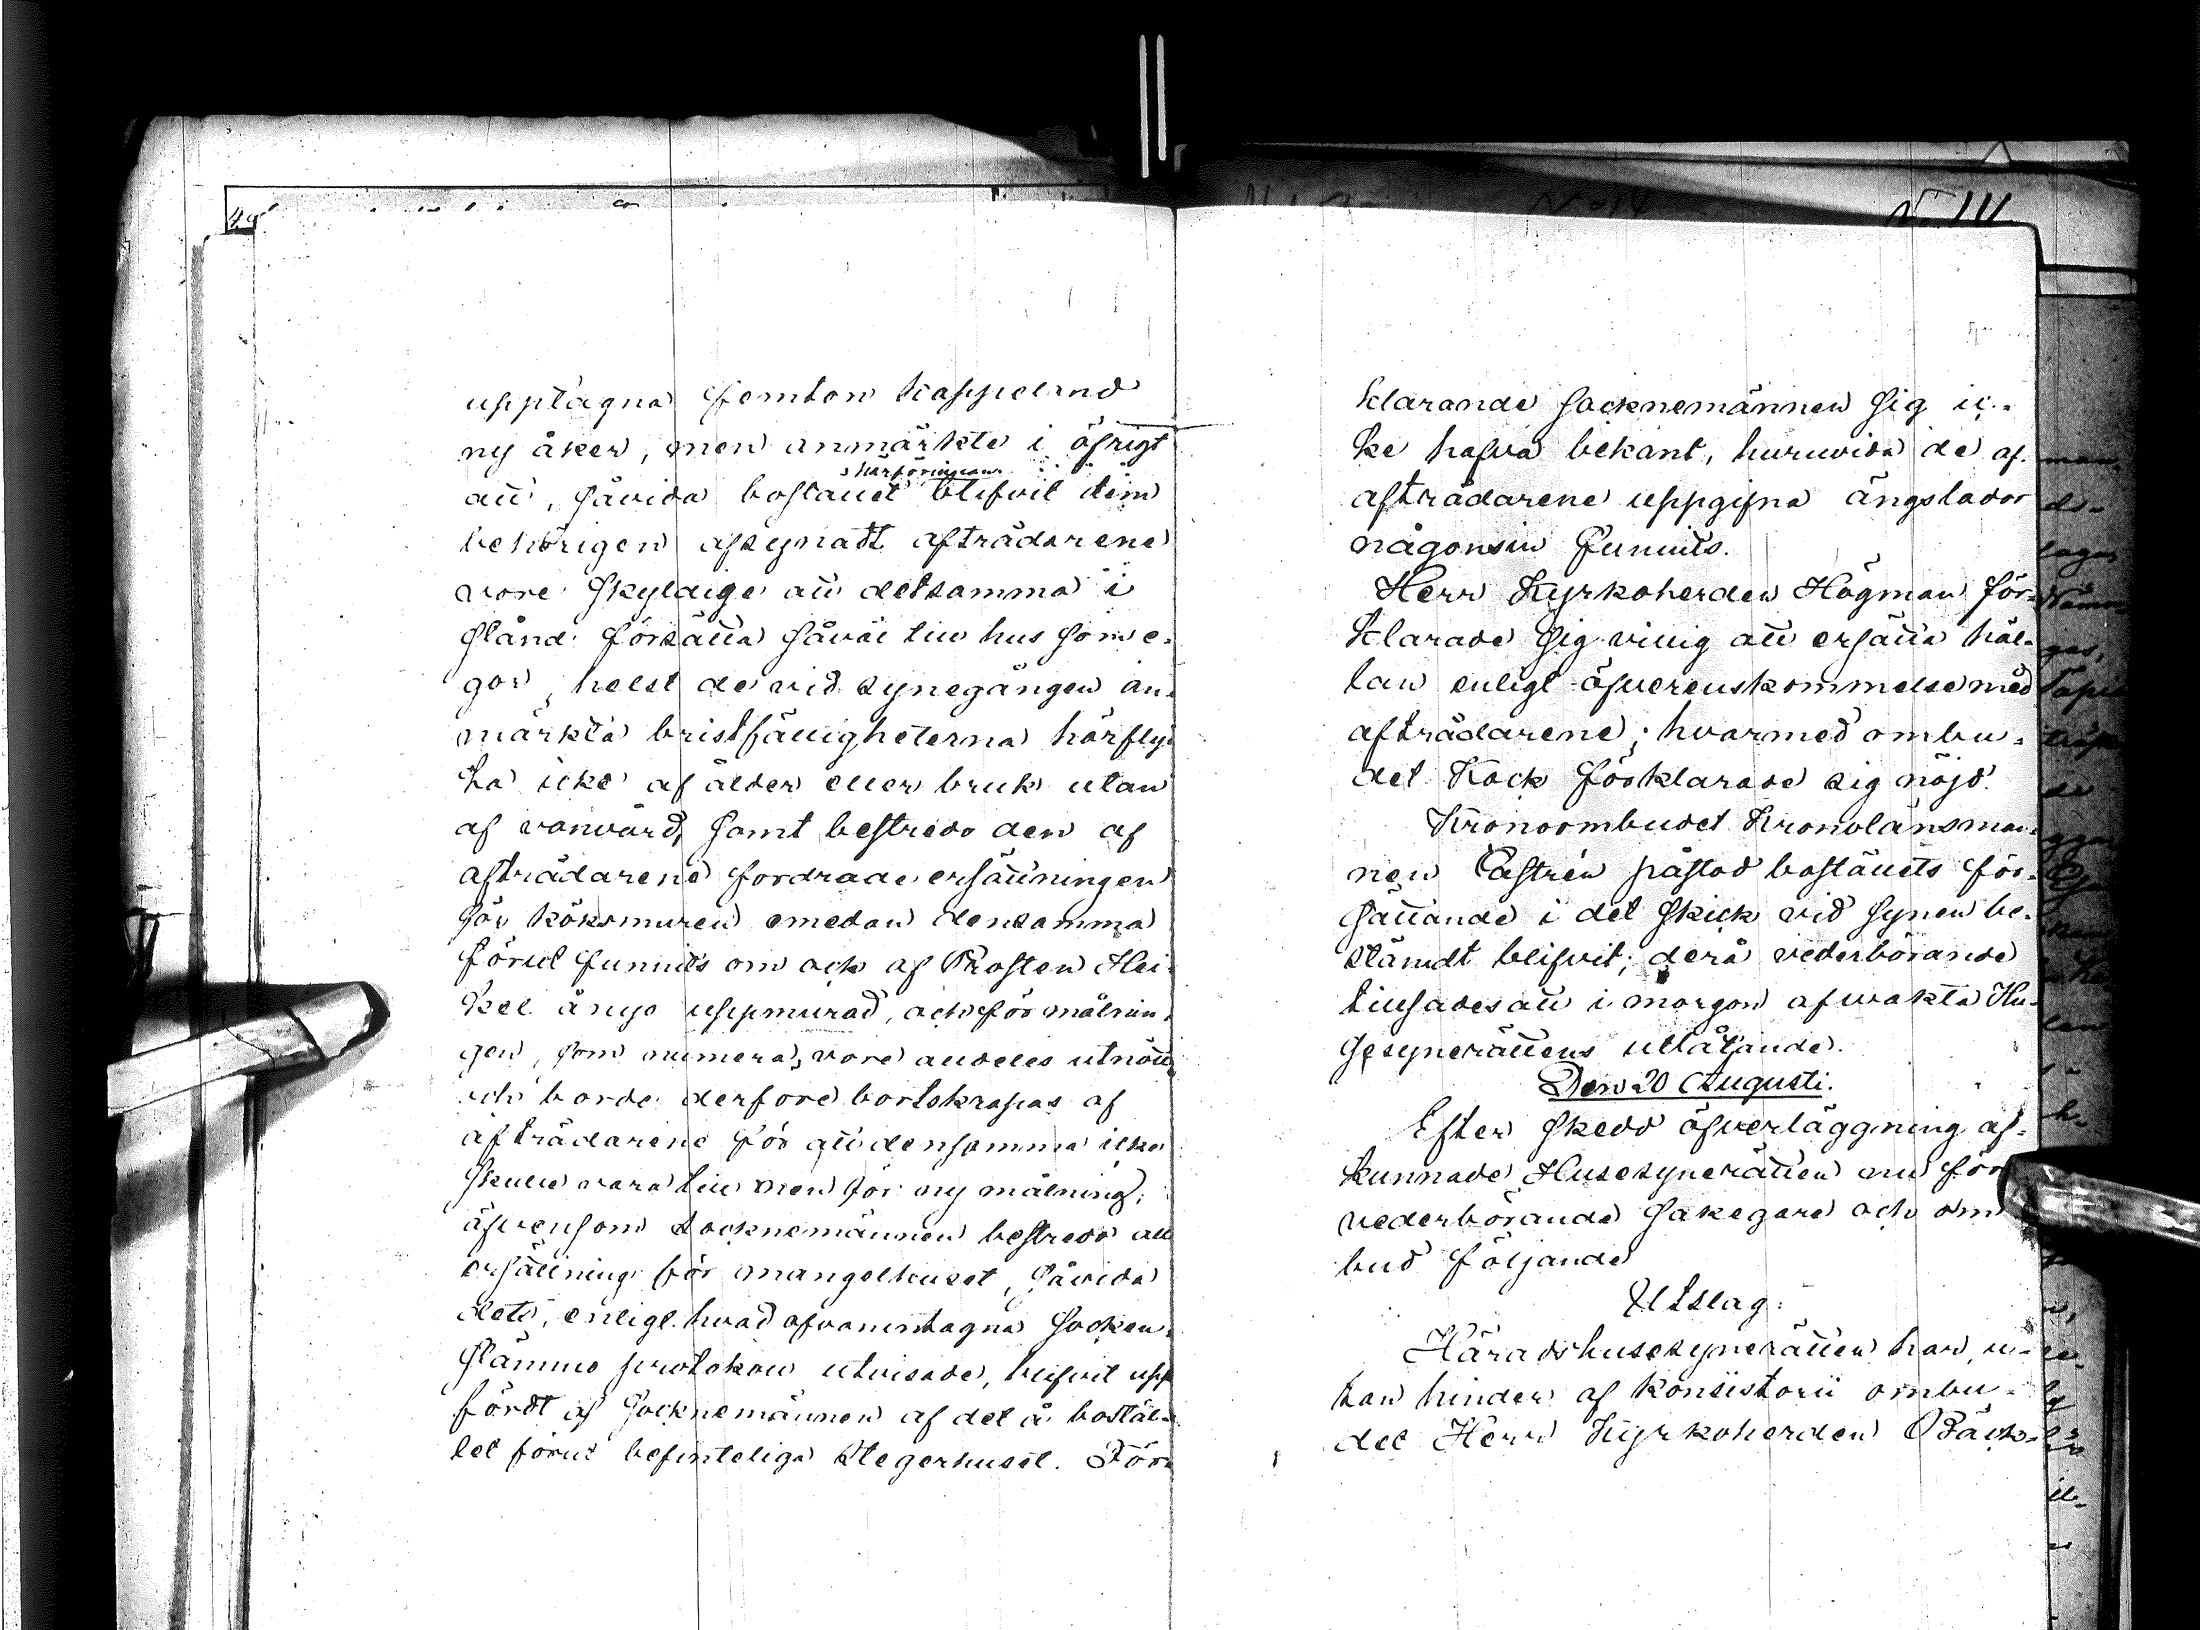 upptagna femton kappeland
ny åker, men anmärkte i öfrigt
att, såvida bostället blifvit dem
behörigen afsynadt afträdarene
vore skyldige att detsamma i
stånd försätta såväl till hus som e-
gor, helst de vid synegången an-
märkta bristfälligheterna härfly-
ta icke af ålder eller bruk utan
af vanvård, samt bestredo den af
afträdarene fordrade ersättningen
för köksmuren emedan densamma
förut funnits om ock af Prosten Hei-
kel ånyo uppmurad, och för målnin-
gen, som numera, vore alldeles utnött
och borde derföre bortskrapas af
afträdarene för att densamma icke
skulle vara till men för ny målning;
äfvensom Socknemännen bestredo all
ersättning för mangelhuset, såvida
det, enligt hvad ofvanintagna Socken-
stämmo protokoll utvisade, blifvit upp
fördt af Socknemännen af det å bostäl-
let förut befinteliga Stegerhuset. För-
klarande Socknemännen sig ic-
ke hafva bekant, huruvida de af
afträdarene uppgifna ängslador
någonsin funnits.
Herr Kyrkoherden Högman för-
klarade sig villig att ersätta häl-
tan enligt öfverenskommelse med
afträdarene; hvarmed ombu-
det Kock förklarade sig nöjd.
Kronoombudet Kronolänsman-
nen Castrén påstod boställets för-
sättande i det skick vid synen be-
stämdt blifvit; derå vederbörande
tillsades att i morgon afvakta Hu-
sesynerättens utlåtande.
Den 20 Augusti.
Efter skedd öfverläggning af-
kunnade Husesynerätten nu för
vederbörande sakegare och om
bud följande
Utslag:
Häradshusesynerätten har, u-
tan hinder af Konsistorii ombu-
det Herr Kyrkoherden Bäck-